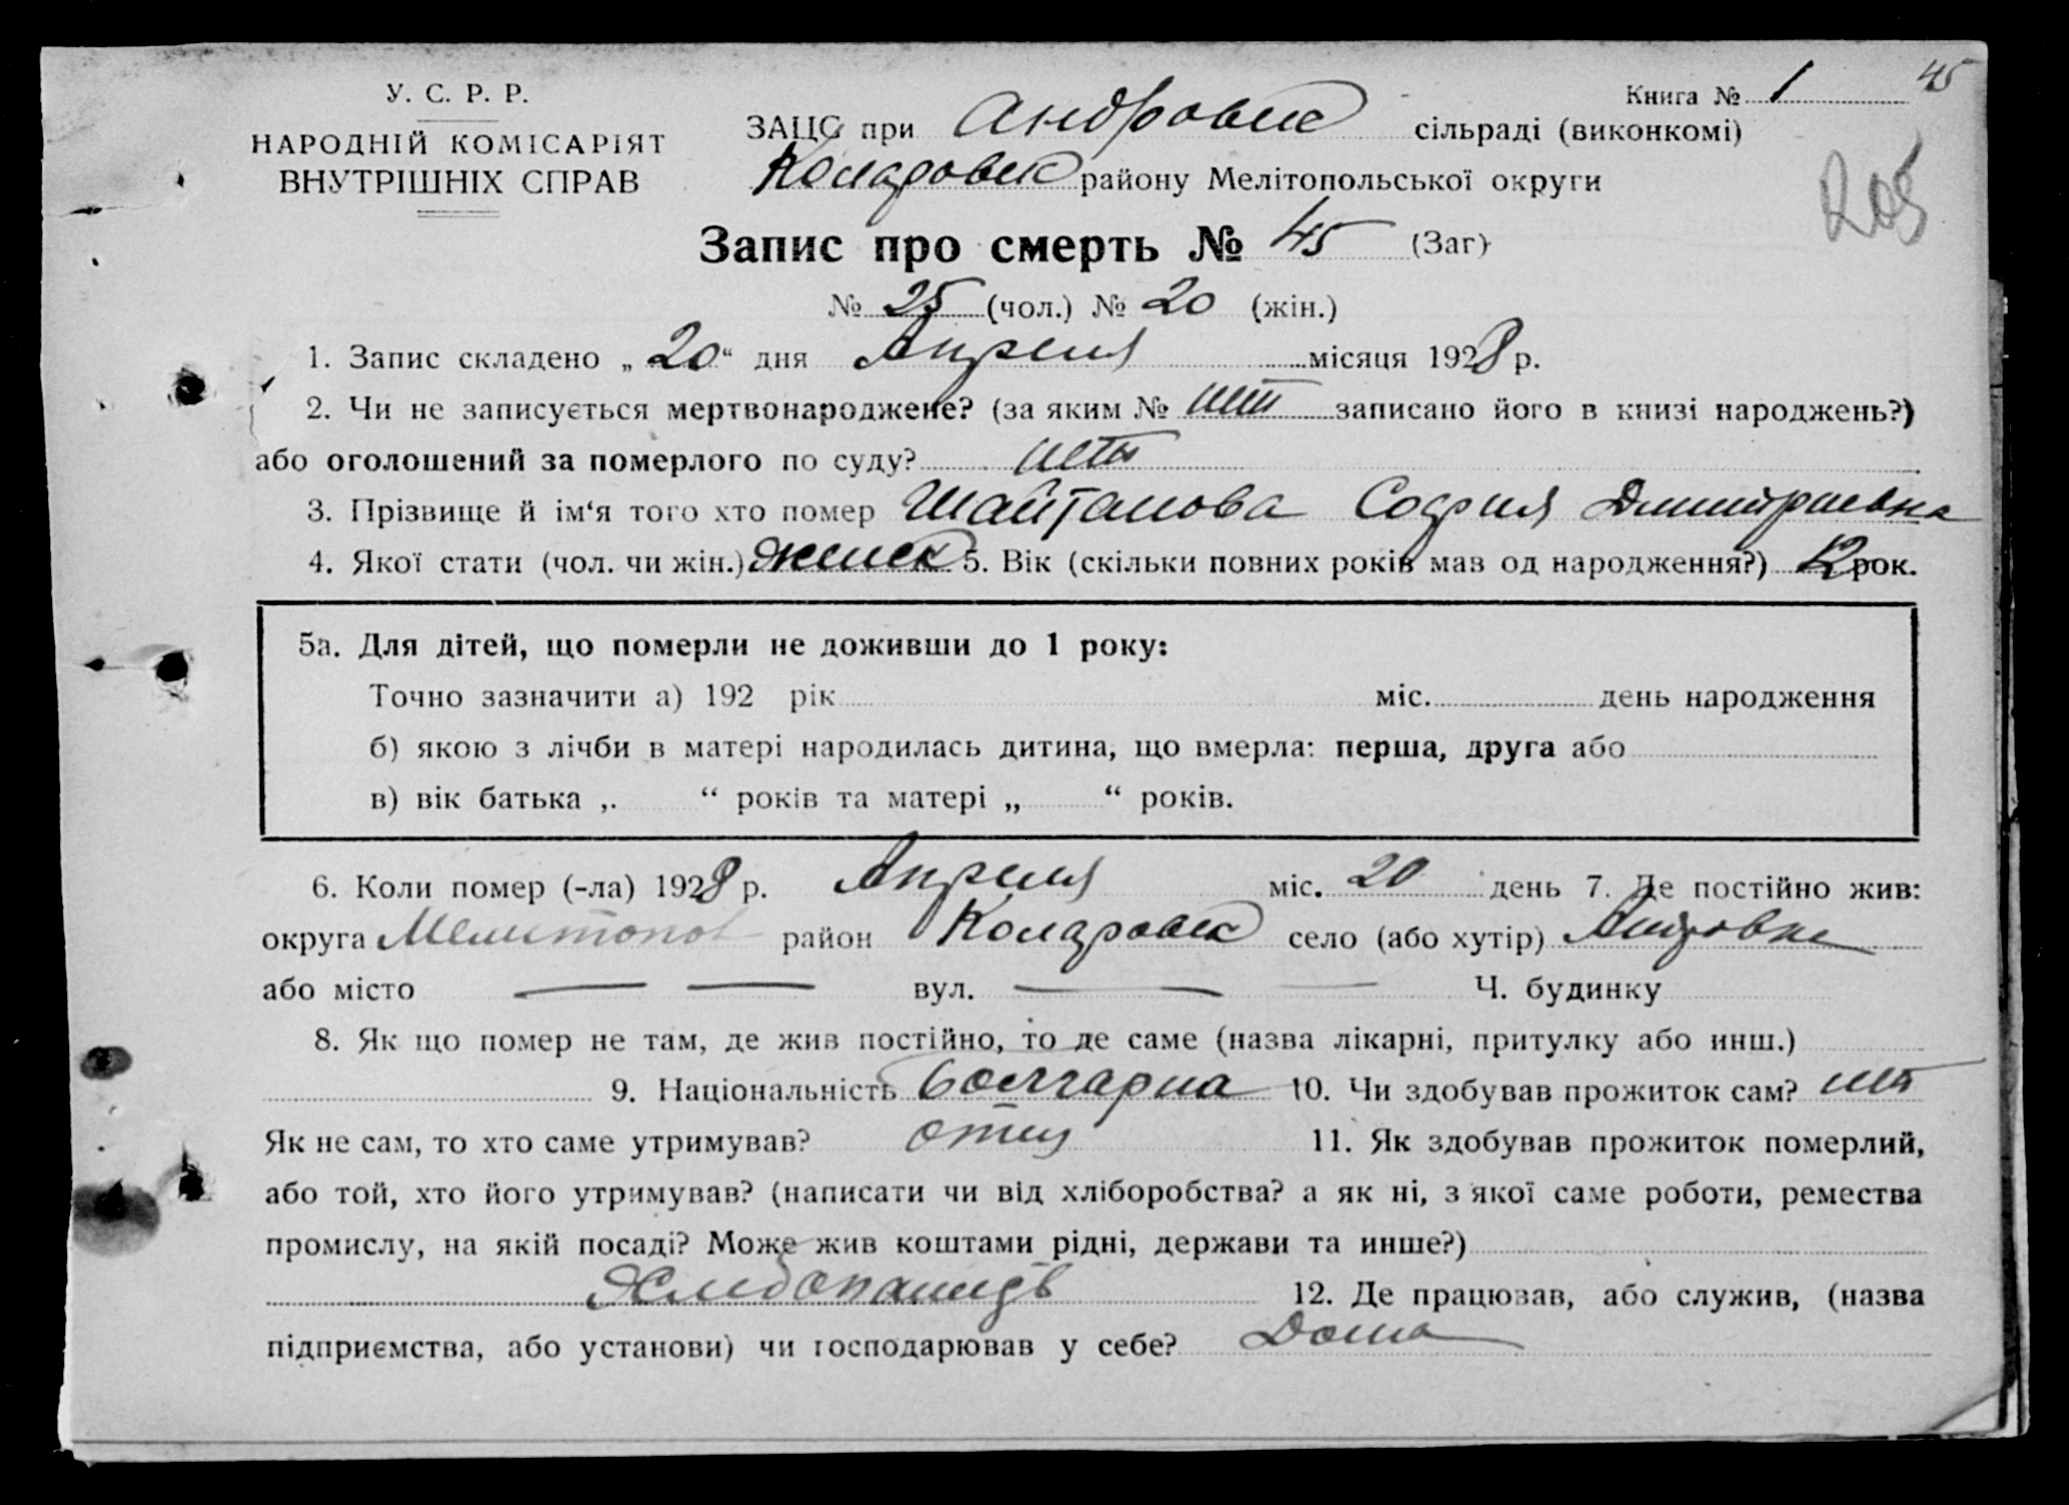 Книга № 1 45
У. С. Р. Р.
НАРОДНІЙ КОМІСАРІЯТ
ВНУТРІШНІХ СПРАВ
ЗАЦС при Андровск сільраді (виконкомі)
Коларовск району Мелітопольської округи
205
Запис про смерть № 45 (Заг)
№ 25 (чол.) № 20 (жін.)
1. Запис складено „ 20 “ дня Апреля місяця 1928 р.
2. Чи не записується мертвонароджене? (за яким № нет записано його в книзі народжень?)
або оголошений за померлого по суду? нет
3. Прізвище й ім‘я того хто помер Шайтанова София Дмитриевна
4. Якої стати (чол. чи жін.) женск 5. Вік (скільки повних років мав од народження?) 12 рок.
5а. Для дітей, що померли не доживши до 1 року:
Точно зазначити а) 192 рік міс. день народження
б) якою з лічби в матері народилась дитина, що вмерла: перша, друга або
в) вік батька „ “ років та матері „ “ років.
6. Коли помер (-ла) 1928 р. Апреля міс. 20 день 7. Де постійно жив:
округа Мелитопол район Коларовск село (або хутір) Андровка
або місто — — вул. — — Ч. будинку
8. Як що помер не там, де жив постійно, то де саме (назва лікарні, притулку або инш.)
9. Національність болгарка 10. Чи здобував прожиток сам? нет
Як не сам, то хто саме утримував? отец 11. Як здобував прожиток померлий,
або той, хто його утримував? (написати чи від хліборобства? а як ні, з якої саме роботи, ремества
промислу, на якій посаді? Може жив коштами рідні, держави та инше?)
12. Де працював, або служив, (назва
підприємства, або установи) чи господарював у себе? Дома